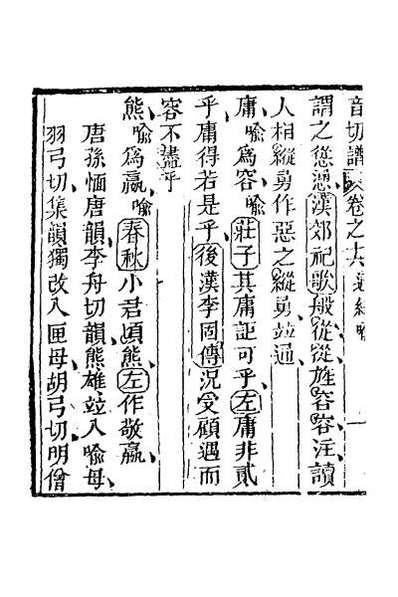 音切譜 卷之十六
謂之慫慂漢郊祀歌般從從旌容容注讀
人相縱㬰作惡之縱㬰並通
庸喻爲容喻莊子其庸詎可乎左庸非貳
乎庸得若是乎後漢李固傳況受顧遇而
容不盡乎
熊喻爲嬴喻春秋小君頃熊左作敬嬴
唐孫愐唐韻李舟切韻熊雄並入喻母
羽弓切集韻獨改入匣母胡弓切明僧